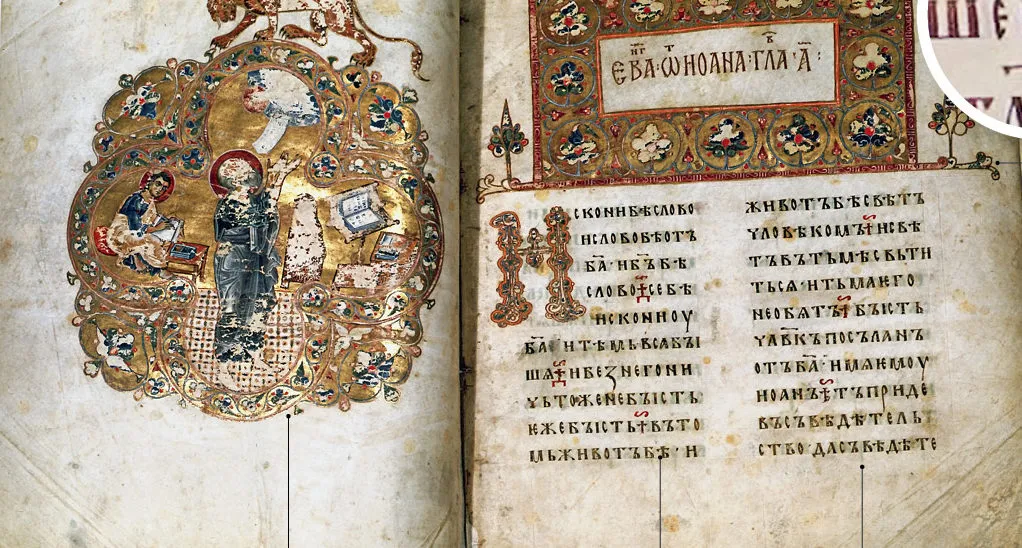 ЕВА·Ѡ҇Т ИОАНА·ГЛА·А҃:
ИСКОНИБѢСЛОВО
ИСЛОВОБѢОТЪ
БА҃·ИБЪ҃БѢ
СЛОВО·СЕБѢ
ИСКОНИОУ
БА҃·ИТѢМЬВСАБЫ
ШѦ·ИБЕЗНЕГОНИ
ЧЬТОЖЕНЕБЫСТЬ
ЕЖЕБЫСТЬ·ВЪТО
МЬЖИВОТЪБѢ·И
ЖИВОТЪБѢСВѢТЪ
ЧЛОВѢКОМЪ·ИСВѢ
ТЪВЪТЬМѢСВЬТИ
ТЬСѦ·ИТЬМАѤГО
НЕОБѦТЪ·БЫСТЬ
ЧЛ҃ВКЪПОСЪЛАНЪ
ОТЪБА҃·ИМѦѤМОУ
ИОАНЪ·ТЪПРИДЕ
ВЪСЪВѢДѢТЕЛЬ
СТВО·ДАСЪВѢДѢТЕ